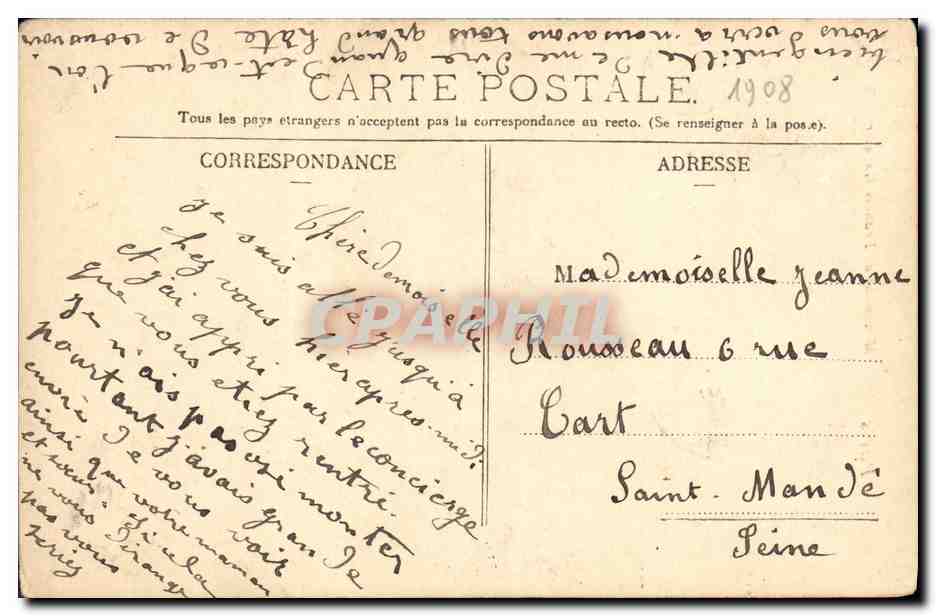 CARTE POSTALE.
1908
Tous les pays etrangers n'acceptent pas la correspondance au recto. (Se renseigner à la poste).
CORRESPONDANCE
Chère demoiselle
je suis allé jusqu'à
chez vous hier apres-midi
et j'ai appri par le concierge
que vous etiez rentré.
Je n'ais pas osé monter
pourtant j'avais gran de
envie de vous voir
ainsi que votre maman
et soeur. si cela
ne vous dirange
pas vous
seriez
bien gentille de me dire quand est-ce que l'on
vous verra. nous avons tous grand hâte de vous voir
ADRESSE
Mademoiselle Jeanne
Rousseau 6 rue
Cart
Saint-Mandé
Seine
CPAPHIL